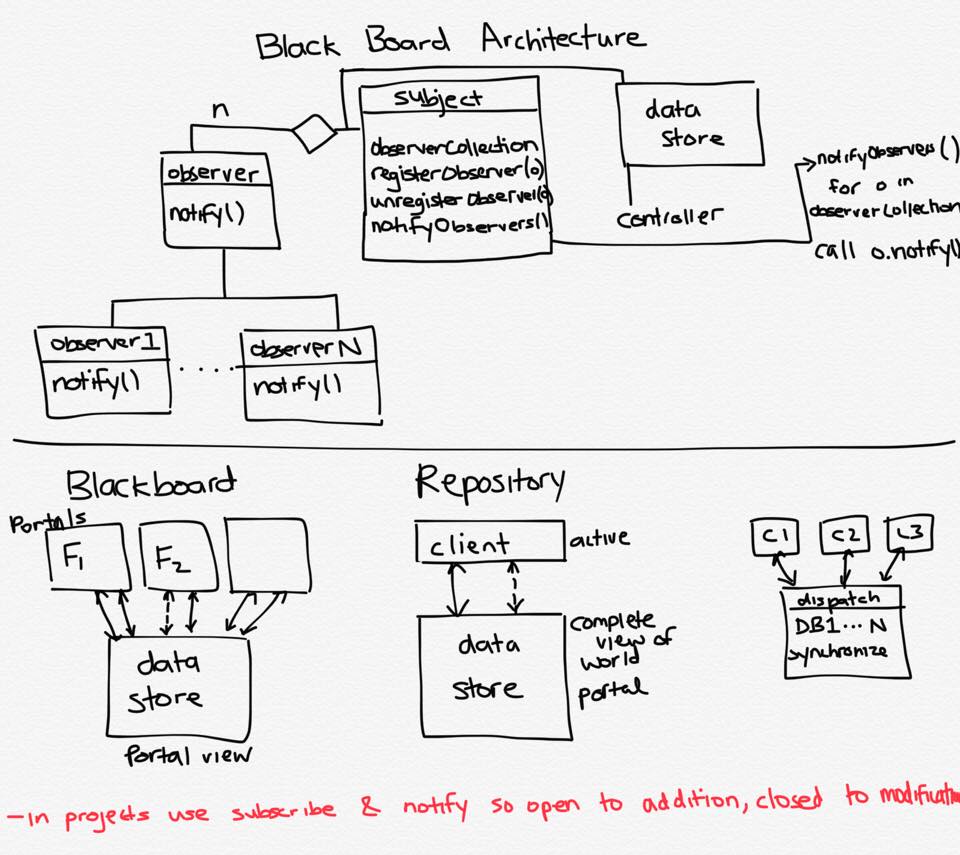 Black Board Architecture
n
subject
observerCollection
registerObserver(o)
unregisterObserver(o)
notifyObservers()
data
store
controller
notifyObservers()
for o in
observerCollection
call o.notify()
observer
notify()
observer1
notify()
....
observerN
notify()
Blackboard
Portals
F1
F2
data
store
Portal view
Repository
client
active
data
store
complete
view of
world
portal
C1
C2
C3
dispatch
DB1...N
synchronize
-In projects use subscribe & notify so open to addition, closed to modification